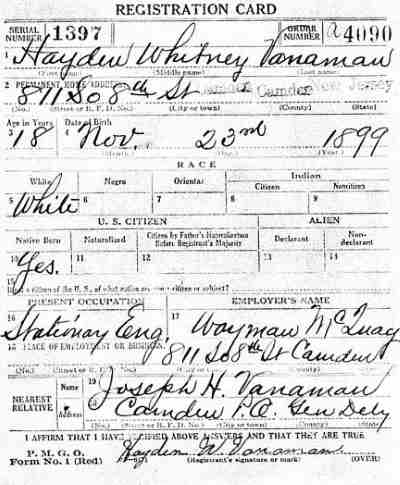 REGISTRATION CARD
SERIAL NUMBER 1397 ORDER NUMBER a4090
1 Hayden Whitney Vanaman
(First name) (Middle name) (Last name)
2 PERMANENT HOME ADDRESS
811 So 8th St Camden Camden New Jersey
(No.) (Street or R. F. D. No.) (City or town) (County) (State)
Age in Years Date of Birth
3 18 4 Nov. 23rd 1899
(Year)
RACE
White Negro Oriental Indian
Citizen Noncitizen
5 White 6 7 8 9
U. S. CITIZEN ALIEN
Native Born Naturalized Citizen by Father's Naturalization Before Registrant's Majority Declarant Non-declarant
10 Yes. 11 12 13 14
15
citizen of the U. S., of what nation are you a citizen or subject?
PRESENT OCCUPATION EMPLOYER'S NAME
16 Stationary Eng 17 Wayman McQuay
18 PLACE OF EMPLOYMENT OR BUSINESS
811 So 8th St Camden
(No.) (City or town) (County) (State)
NEAREST RELATIVE Name 19 Joseph H. Vanaman
Address Camden P.O. Gen Dely
I AFFIRM THAT I HAVE VERIFIED ABOVE ANSWERS AND THAT THEY ARE TRUE
P. M. G. O.
Form No. 1 (Red) Hayden W. Vanaman
(Registrant's signature or mark) (OVER)